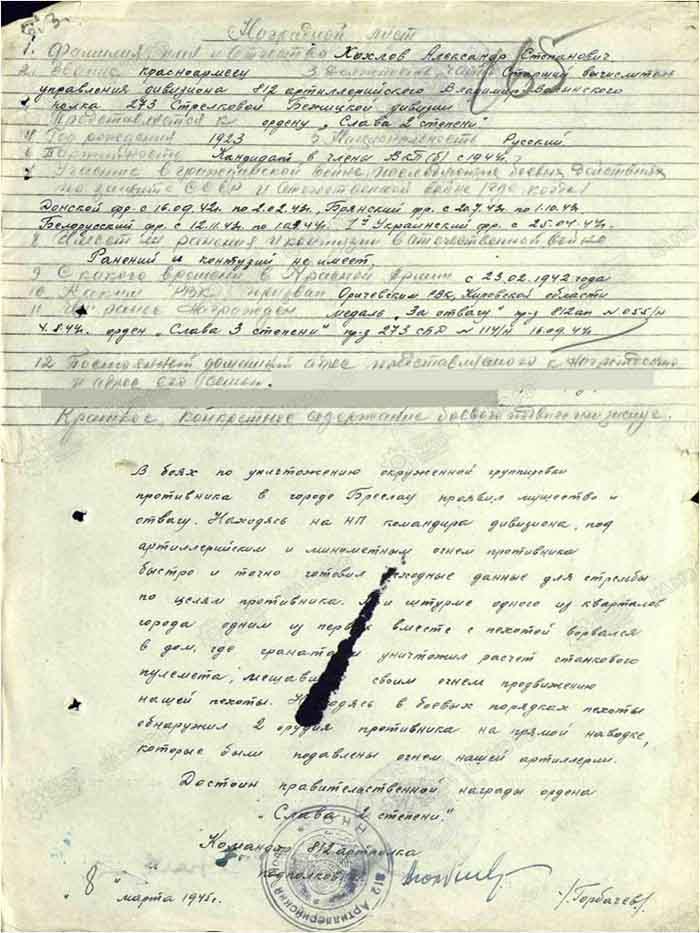 Наградной лист
1. Фамилия имя и отчество Хохлов Александр Степанович
2. Звание красноармеец 3. Должность, часть Старший вычислитель
управления дивизиона 812 артиллерийского Владимир-Волынского
полка 273 Стрелковой Бежицкой дивизии
Представляется к ордену „Слава 2 степени"
4 Год рождения 1923 5 Национальность Русский
6 Партийность Кандидат в члены ВКП(б) с 1944г.
Участие в гражданской войне, последующих боевых действиях
по защите СССР и отечественной войне (где, когда)
Донской фр- с 16.09.42г. по 2.02.43г., Брянский фр. с 20.7.43г. по 1.10.43г.
Белорусский фр. с 12.11.43г. по 1.08.44г. 1й Украинский фр. с 25.04.44г.
8 Имеет ли ранения и контузии в отечественной войне
Ранений и контузий не имеет.
9 С какого времени в Красной армии с 23.02.1942 года
10 Каким РВК призван Оричевским РВК, Кировской области
11 Чем ранее награжден медаль „За отвагу" пр-з 812ап № 055/н
4.8.44г. орден „Слава 3 степени" пр-з 273 сбд № 114/н 16.09.44г
12 Постоянный домашний адрес представляемого к награждению
и адрес его семьи.
Краткое, конкретное содержание боевого подвига
В боях по уничтожению окруженной группировки
противника в городе Бреслау проявил мущество и
отвагу. Находясь на НП командира дивизиона, под
артиллерийским и минометным огнем противника
быстро и точно готовил исходные данные для стрельбы
по целям противника. При штурме одного из кварталов
города одним из первых вместе с пехотой ворвался
в дом, где гранатами уничтожил расчет станкового
пулемета, мешавший своим огнем продвижению
нашей пехоты. Находясь в боевых порядках пехоты
обнаружил 2 орудия противника на прямой наводке,
которые были подавлены огнем нашей артиллерии.
Достоин правительственной награды ордена
„Слава 2 степени."
Командир 812 артполка
подполковник /Горбачев/
„8" марта 1945г.
812 Артиллерийский